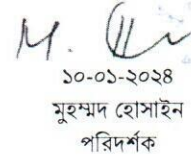 ১০-০১-২০২৪
মুহম্মদ হোসাইন
পরিদর্শক